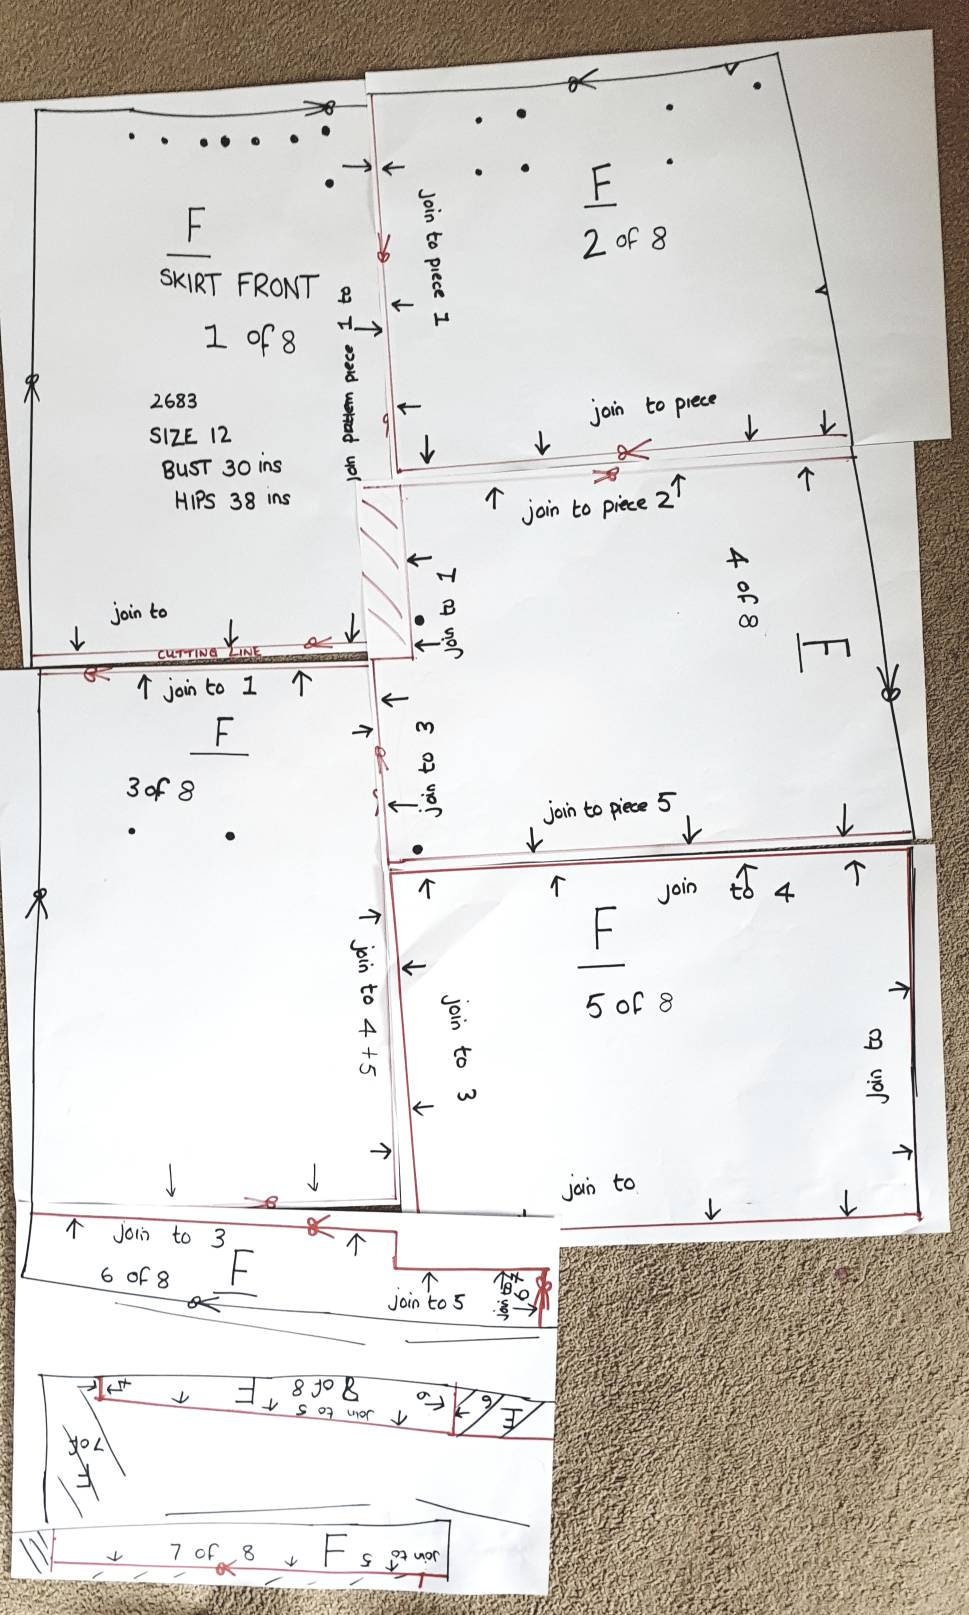 F
SKIRT FRONT
1 of 8
2683
SIZE 12
BUST 30 ins
HIPS 38 ins
join pattern piece 1 to
join to
CUTTING LINE
F
2 of 8
join to piece 1
join to piece
join to 1
F
3 of 8
join to 4 + 5
join to piece 2
4 of 8
F
join to 1
join to 3
join to piece 5
join to 4
F
5 of 8
join to 3
join to
join to
join to 3
6 of 8
F
join to 5
join to
8 of 8
F
join to 5
6
6
F
7 of
F
7 of 8
F
join to 5